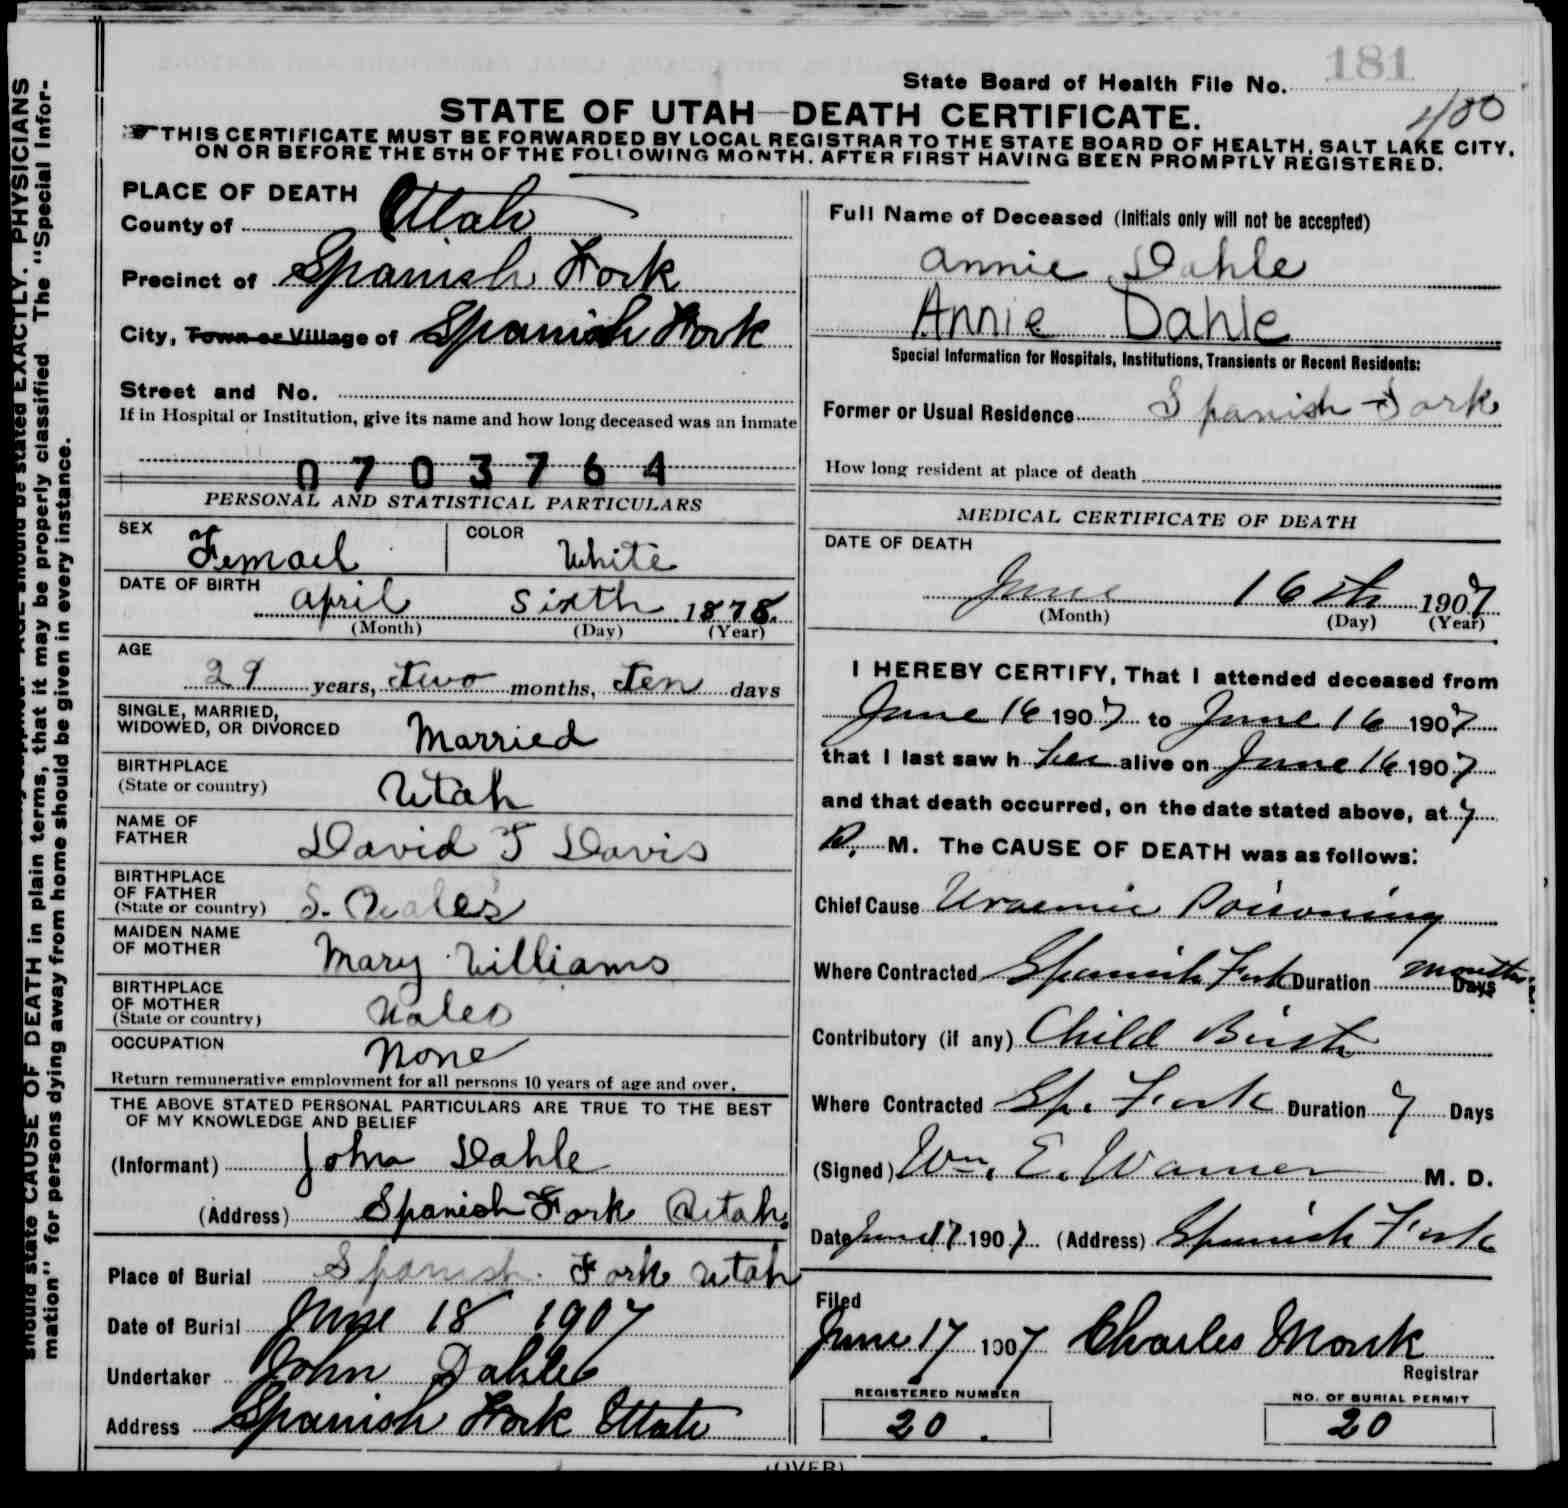 181
State Board of Health File No.
400
STATE OF UTAH—DEATH CERTIFICATE.
THIS CERTIFICATE MUST BE FORWARDED BY LOCAL REGISTRAR TO THE STATE BOARD OF HEALTH, SALT LAKE CITY,
ON OR BEFORE THE 5TH OF THE FOLLOWING MONTH, AFTER FIRST HAVING BEEN PROMPTLY REGISTERED.
PLACE OF DEATH
County of Utah
Precinct of Spanish Fork
City, Town or Village of Spanish Fork
Street and No.
If in Hospital or Institution, give its name and how long deceased was an inmate
0703764
PERSONAL AND STATISTICAL PARTICULARS
SEX Femael COLOR White
DATE OF BIRTH April Sixth 1878.
(Month) (Day) (Year)
AGE
29 years, two months, ten days
SINGLE, MARRIED,
WIDOWED, OR DIVORCED Married
BIRTHPLACE
(State or country) Utah
NAME OF
FATHER David T Davis
BIRTHPLACE
OF FATHER
(State or country) S. Wales
MAIDEN NAME
OF MOTHER Mary Williams
BIRTHPLACE
OF MOTHER
(State or country) Wales
OCCUPATION None
Return remunerative employment for all persons 10 years of age and over.
THE ABOVE STATED PERSONAL PARTICULARS ARE TRUE TO THE BEST
OF MY KNOWLEDGE AND BELIEF
(Informant) John Dahle
(Address) Spanish Fork Utah.
Place of Burial Spanish Fork Utah
Date of Burial June 18 1907
Undertaker John Dahle
Address Spanish Fork Utah
Full Name of Deceased (Initials only will not be accepted)
Annie Dahle
Annie Dahle
Special Information for Hospitals, Institutions, Transients or Recent Residents:
Former or Usual Residence Spanish Fork
How long resident at place of death
MEDICAL CERTIFICATE OF DEATH
DATE OF DEATH
June 16th 1907
(Month) (Day) (Year)
I HEREBY CERTIFY, That I attended deceased from
June 16 1907 to June 16 1907
that I last saw h her alive on June 16 1907
and that death occurred, on the date stated above, at 7
P. M. The CAUSE OF DEATH was as follows:
Chief Cause Uraemic Poisoning
Where Contracted Spanish Fork Duration months Days
Contributory (if any) Child Birth
Where Contracted Sp. Fork Duration 7 Days
(Signed) Wm. E. Warner M. D.
Date June 17 1907 (Address) Spanish Fork
Filed
June 17 1907 Charles Monk
Registrar
REGISTERED NUMBER
20.
NO. OF BURIAL PERMIT
20
(OVER)
AGE should be stated EXACTLY. PHYSICIANS
should state CAUSE OF DEATH in plain terms, that it may be properly classified The "Special Infor-
mation" for persons dying away from home should be given in every instance.